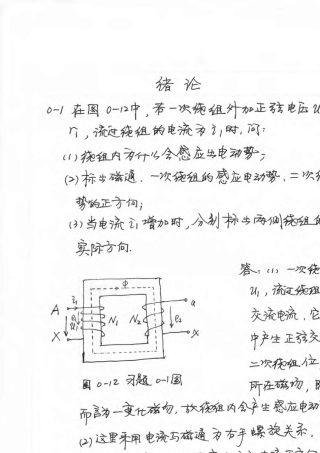 绪 论
0-1 在图0-12中，若一次绕组外加正弦电压u
i₁时，问：
(1) 绕组内为什么会感应出电动势；
(2) 标出磁通、一次绕组的感应电动势、二次
势的正方向；
(3) 当电流i₁增加时，分别标出两侧绕组的
实际方向.
答：(1) 一次绕
u₁，流过绕组
交流电流，它
中产生正弦交
二次绕组位
所在磁场，
Φ
i₁
A
a
e₁
u₁
N₁
N₂
e₂
X
x
图0-12 习题0-1图
而言为一变化磁场，故绕组内会产生感应电动
(2) 这里采用电流与磁通为右手螺旋关系.